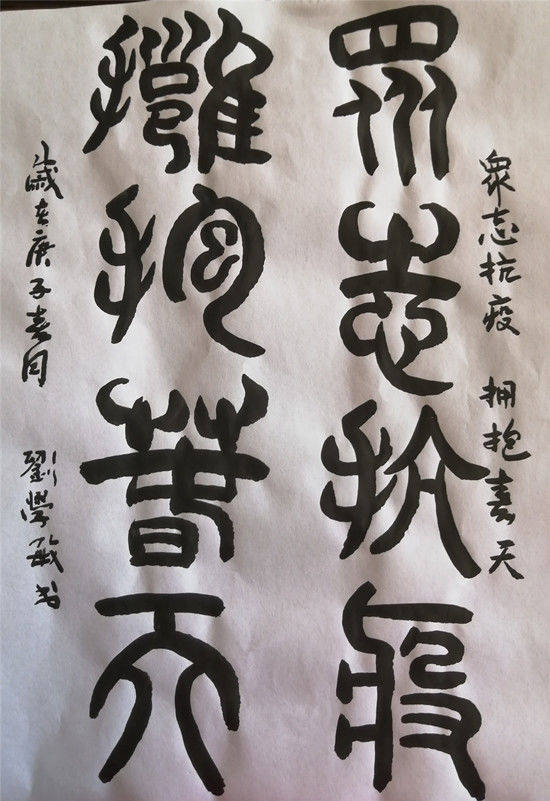 衆志抗疫 拥抱春天
衆志抗疫
擁抱春天
歲在庚子春月 劉學敏书